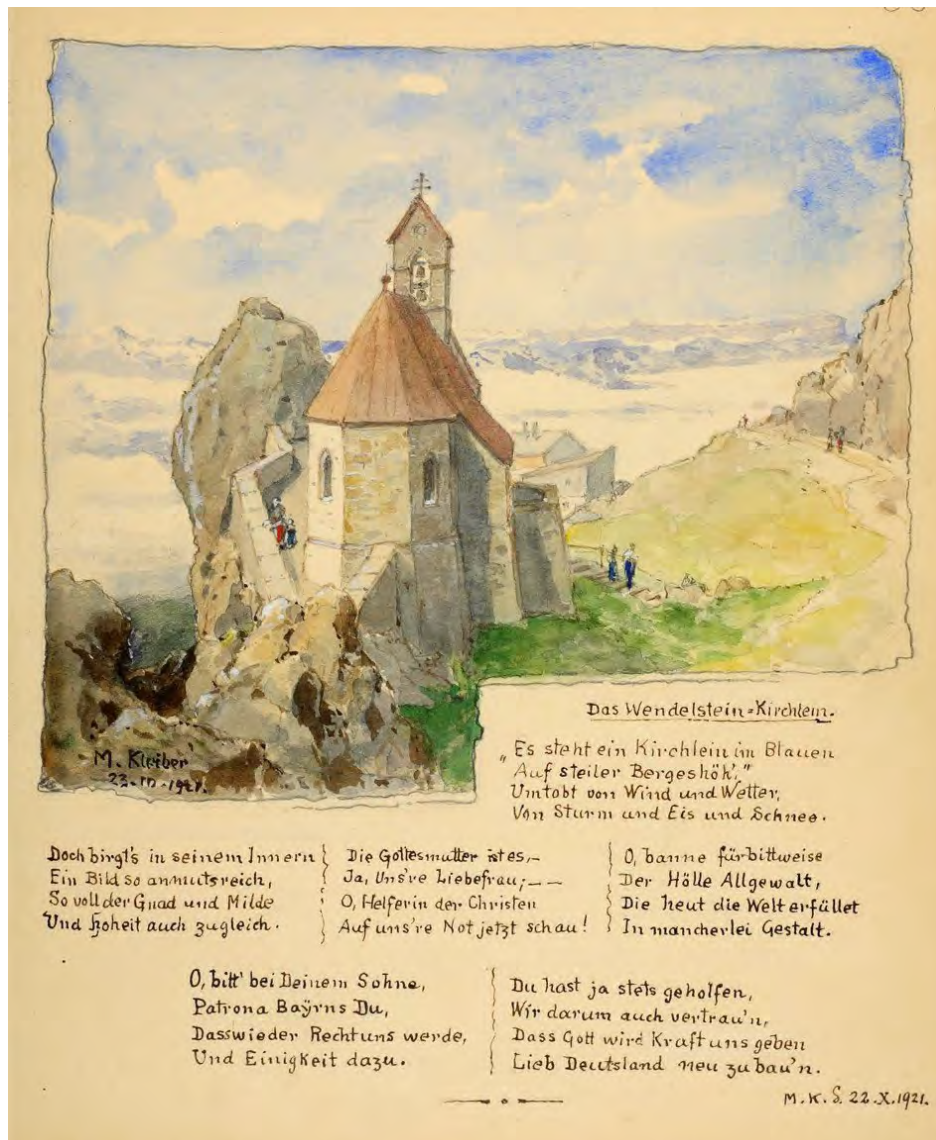 M. Kleiber
Das Wendelstein=Kirchlein.
„Es steht ein Kirchlein im Blauen
Auf steiler Bergeshöh',"
Umtobt von Wind und Wetter,
Von Sturm und Eis und Schnee.
Doch birgt's in seinem Innern
Ein Bild so anmutsreich,
So voll der Gnad und Milde
Und Hoheit auch zugleich.
Die Gottesmutter ist es,–
Ja, Uns're Liebefrau;– –
O, Helferin der Christen
Auf uns're Not jetzt schau!
O, banne fürbittweise
Der Hölle Allgewalt,
Die heut die Welt erfüllet
In mancherlei Gestalt.
O, bitt' bei Deinem Sohne,
Patrona Baÿrns Du,
Dass wieder Recht uns werde,
Und Einigkeit dazu.
Du hast ja stets geholfen,
Wir darum auch vertrau'n,
Dass Gott wird Kraft uns geben
Lieb Deutsland neu zu bau'n.
M. K. S. 22. X. 1921.